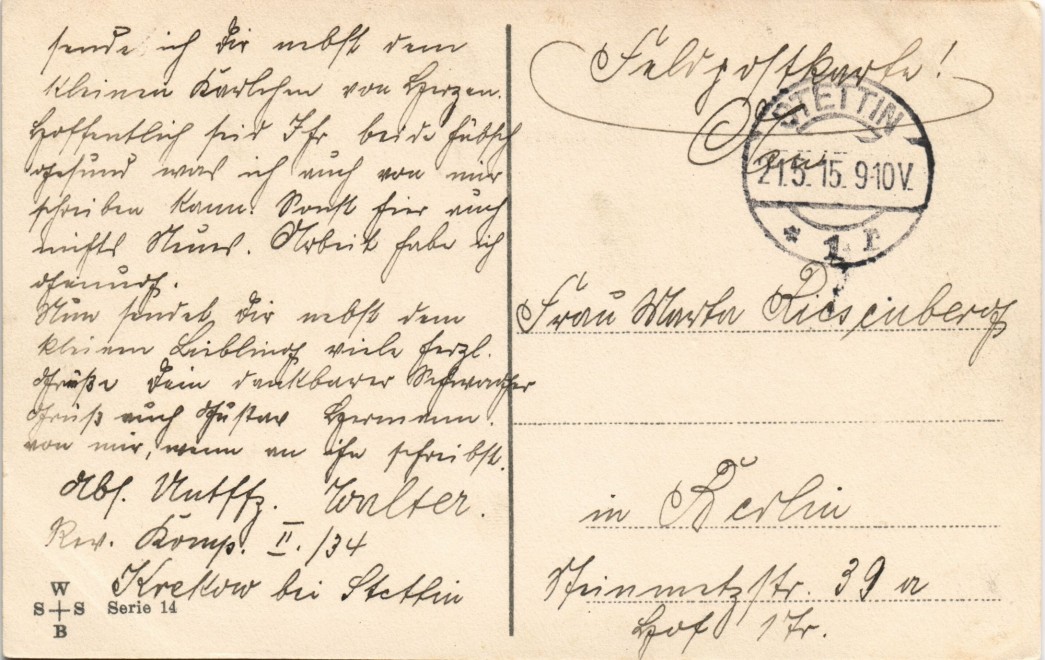 sende ich Dir nebst dem
kleinen Karlchen von Herzen.
Hoffentlich seid Ihr beide hübsch
gesund was ich auch von mir
schreiben kann. Sonst hier auch
nichts Neues. Arbeit habe ich
genug.
Nun sendet Dir nebst dem
kleinem Liebling viele herzl.
Grüße Dein dankbarer Schwager
Gruß auch Gustav Hermann.
von mir, wenn an ihn schreibst.
Abs. Untffz. Walter.
Rev. Komp. II./34
Krekow bei Stettin
W
S S
B
Serie 14
Feldpostkarte!
STETTIN
21.5.15. 9-10V.
* 1 r
Frau Marta Riesenberg
in Berlin
Steinmetzstr. 39 a
Hof 1 Tr.